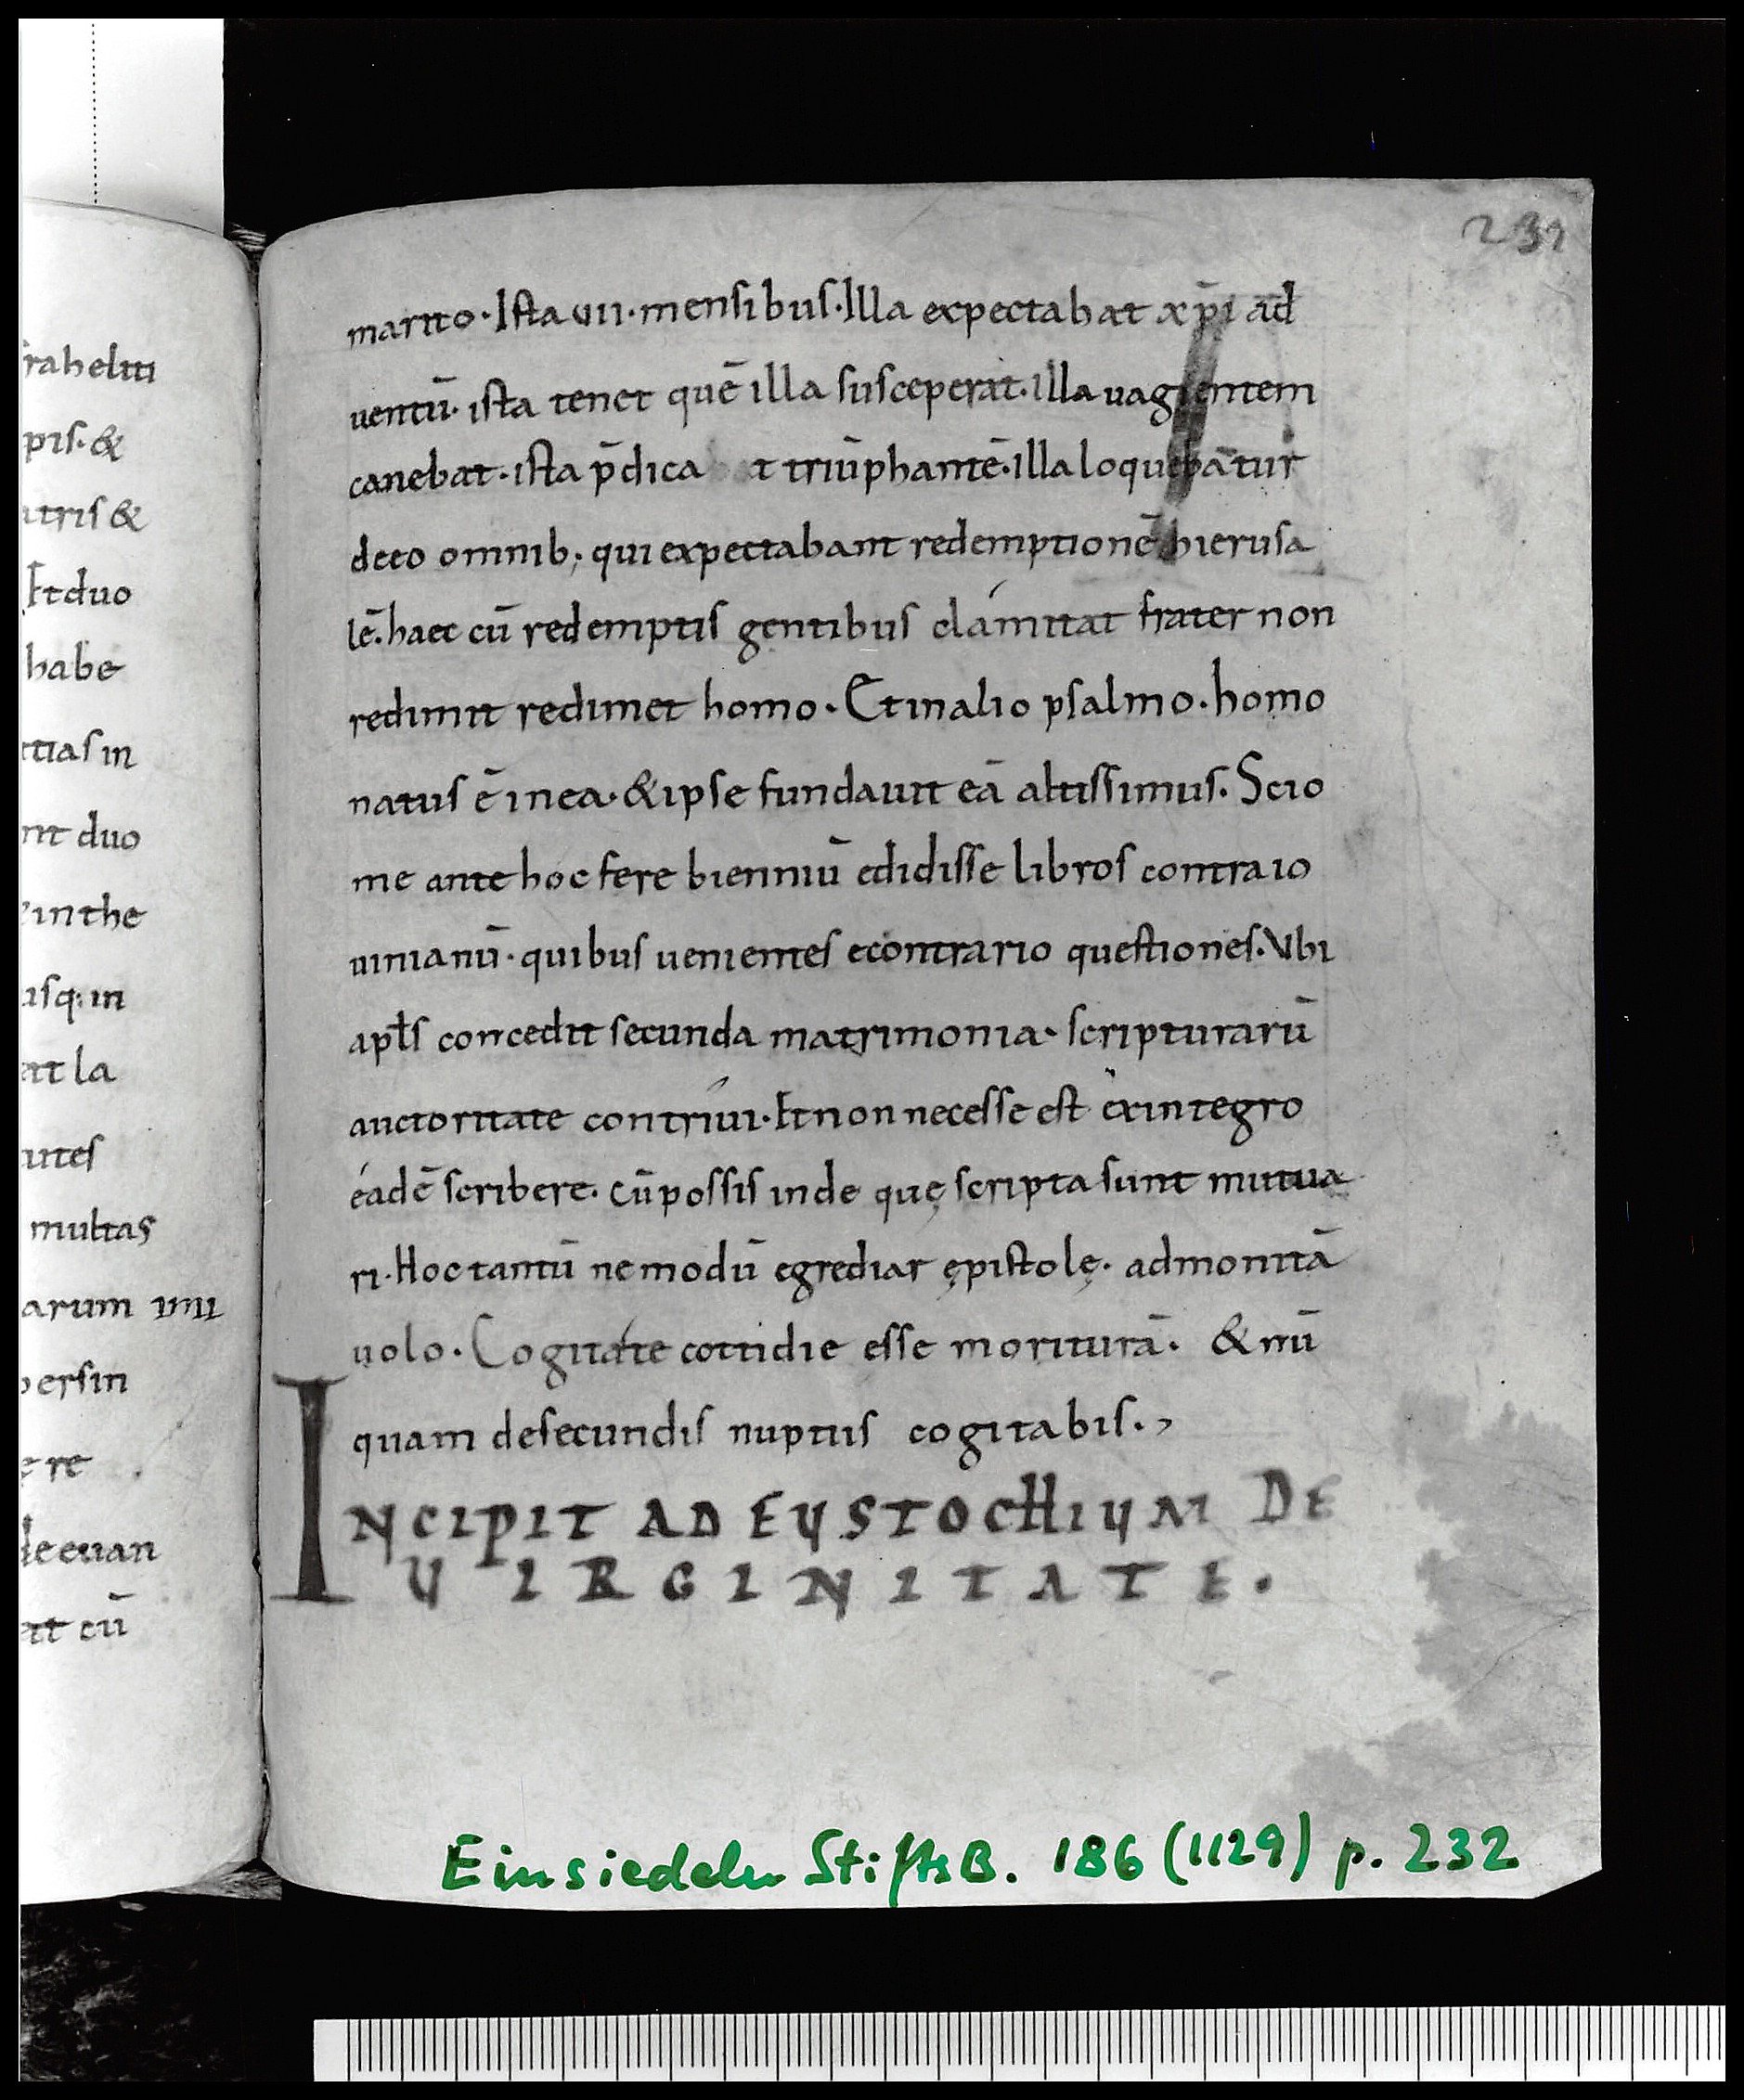 231
rahelin
pis. &
atris &
Et duo
habe
tias in
nt duo
in the
usq; in
at la
utes
multas
arum uiii
persin
ere
de euan
at cū
marito· Ista uii· mensibus· Illa expectabat xp̄i ad
uentū· ista tenet quē illa susceperat· illa uagientem
canebat· ista p̄dica t triūphantē· illa loquebātur
deeo omnib; qui expectabant redemptionē hierusa
lē· haec cū redemptis gentibus clámitat frater non
redimit redimet homo· Et in alio psalmo· homo
natus ē in ea· & ipse fundauit eā altissimus· Scio
me ante hoc fere bienniū edidisse libros contra io
uinianū· quibus uenientes econtrario questiones· Vbi
apłs concedit secunda matrimonia· scripturarū
auctoritate contríui· Et non necesse est exintegro
éadē scribere· cū possis inde quę scripta sunt mutua
ri· Hoc tantū ne modū egrediar ępistolę· admonitā
uolo· Cogitate cottidie esse moriturā· & nū
quam desecundis nuptiis cogitabis·,
INCIPIT AD EUSTOCHIUM DE
UIRGINITATE.
Einsiedeln StiftsB. 186 (1129) p. 232